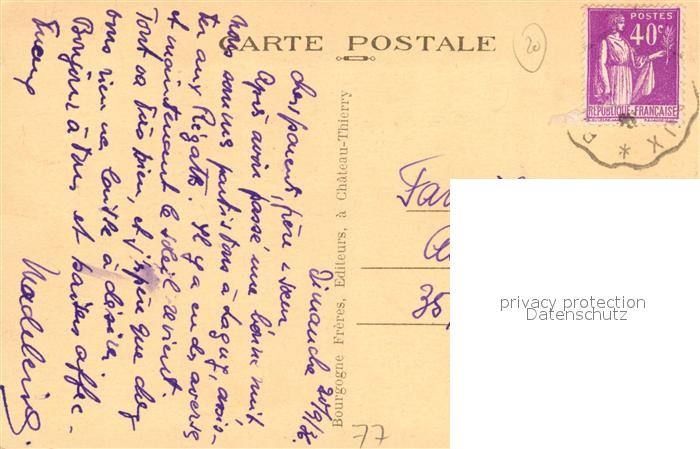 CARTE POSTALE
20
POSTES
40c
RÉPUBLIQUE FRANÇAISE
IX
Bourgogne Frères, Editeurs, à Château-Thierry
Dimanche 20/9/36
Chers parents, père & sœur
Après avoir passé une bonne nuit
nous sommes partis tous à Lagny, assis-
ter aux Régates. Il y a eu des averses
et maintenant le soleil vient.
Tout va très bien, et j'espère que chez
vous rien ne laisse à désirer.
Bonjour à tous, et baisers affec-
tueux
Madeleine.
Fa
35,
77
privacy protection
Datenschutz